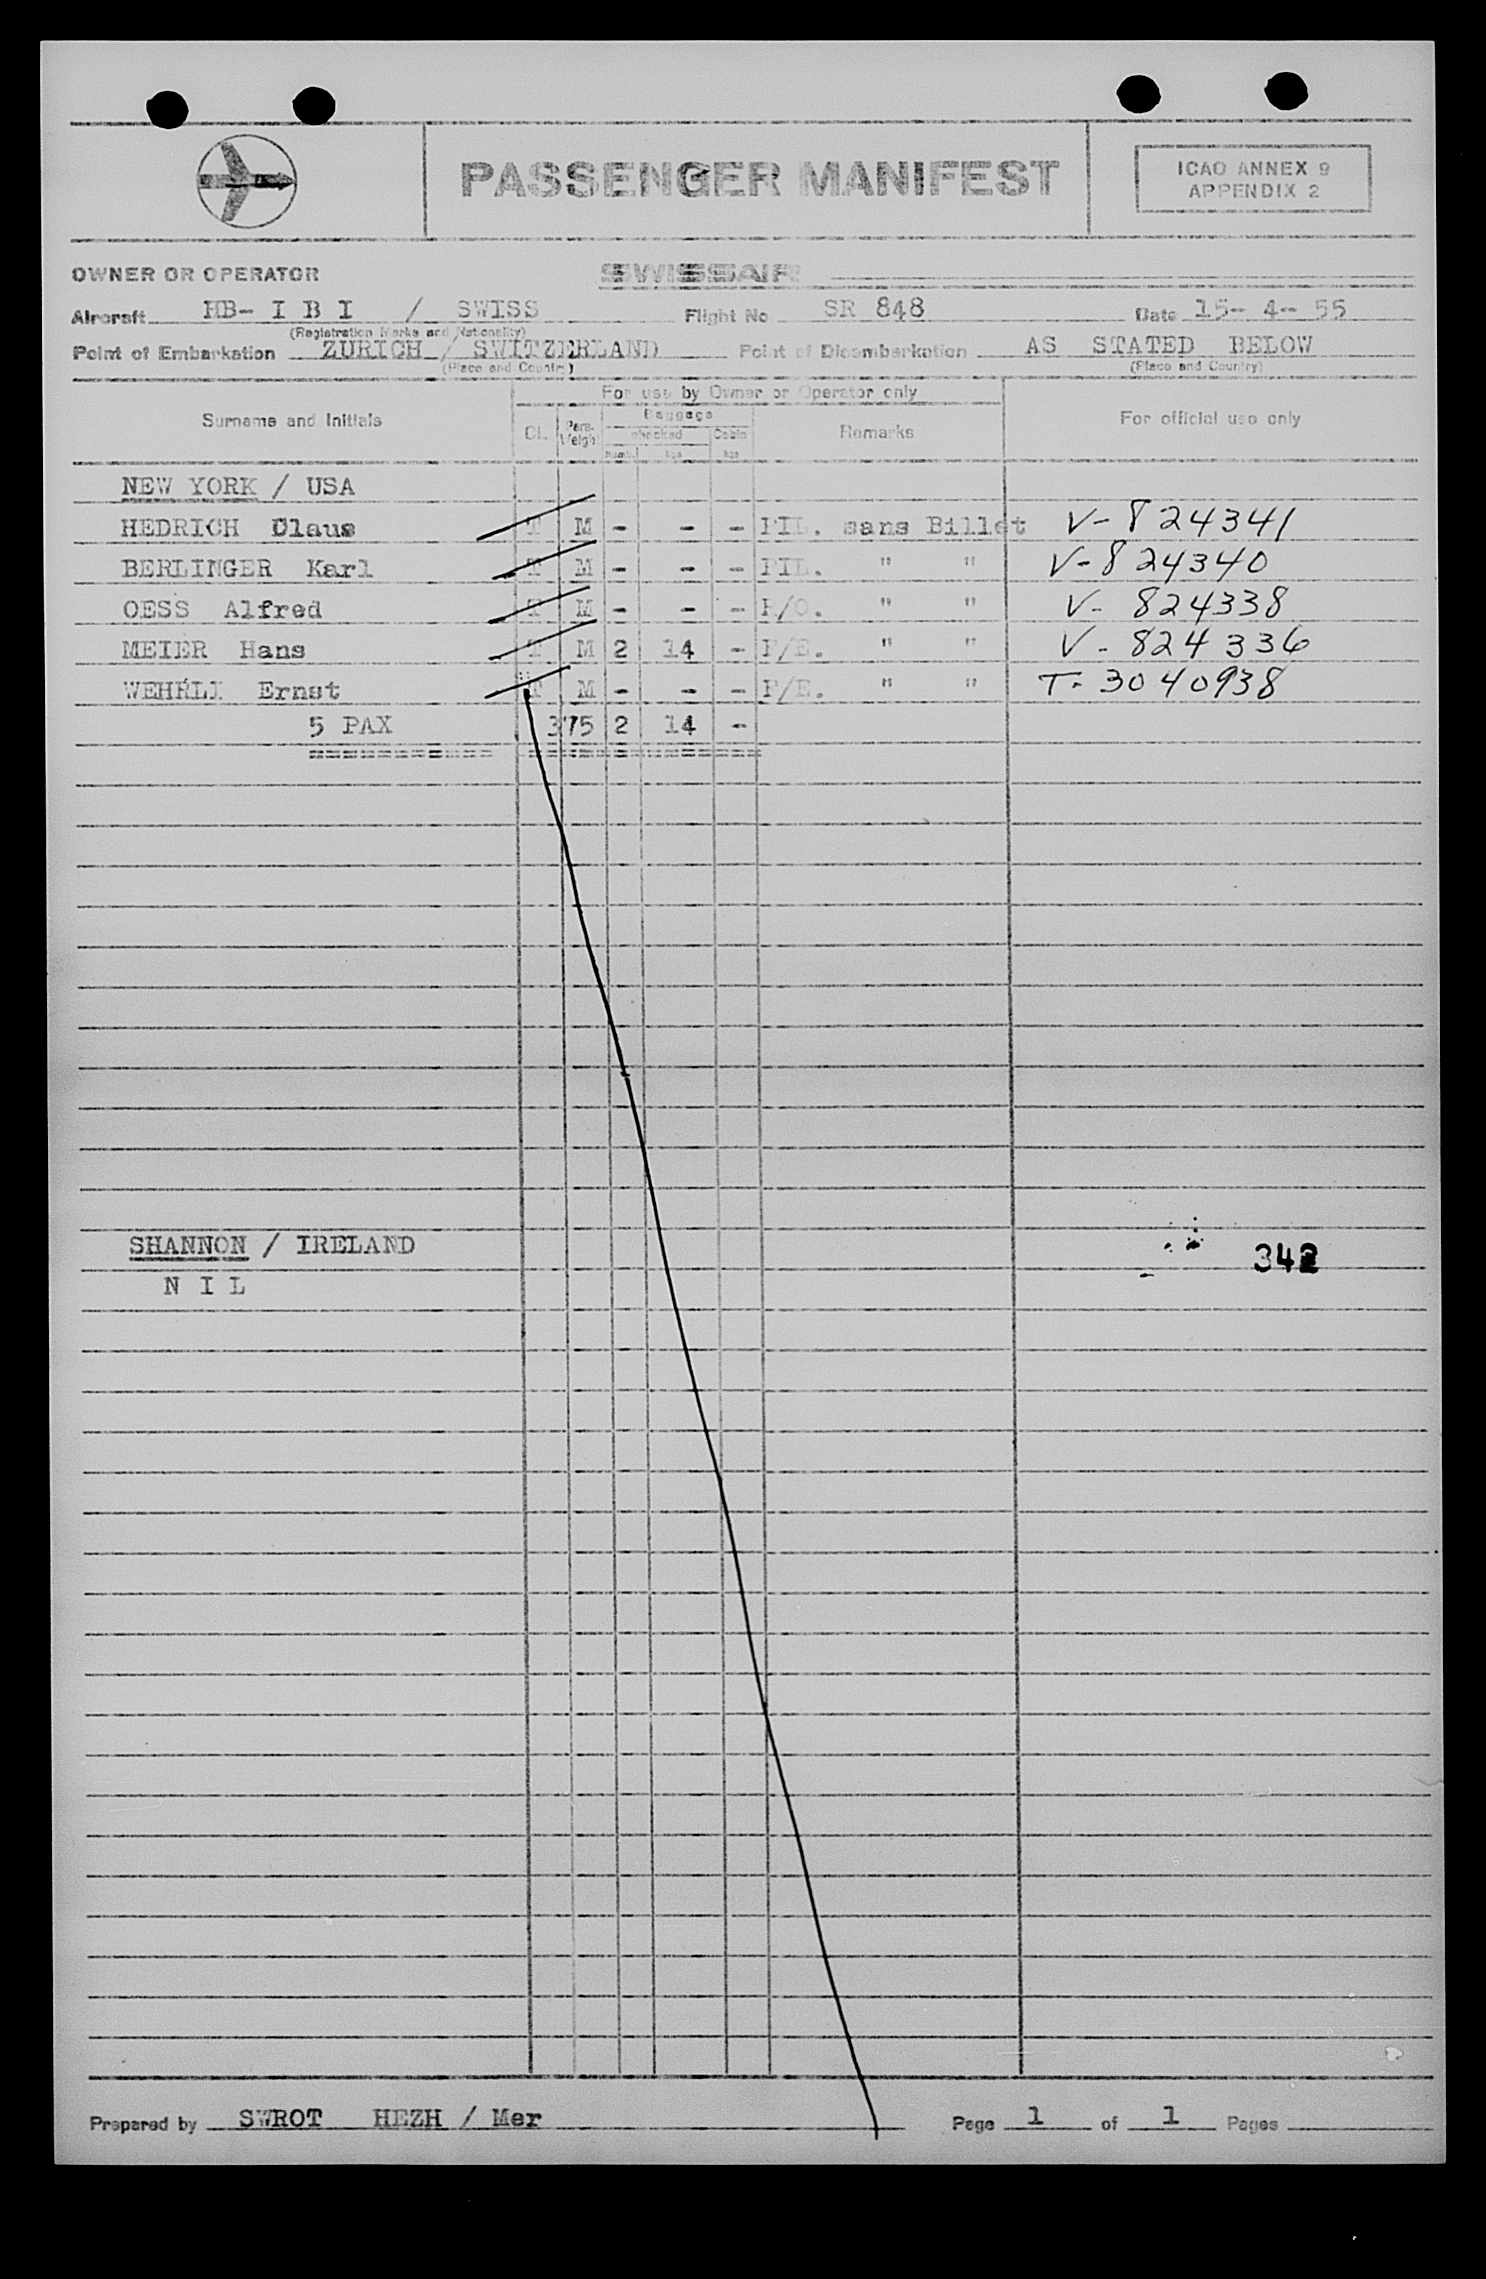 PASSENGER MANIFEST
ICAO ANNEX 9
APPENDIX 2
OWNER OR OPERATOR SWISSAIR
Aircraft HB- I B I / SWISS Flight No SR 848 Date 15- 4- 55
(Registration Marks and Nationality)
Point of Embarkation ZURICH / SWITZERLAND Point of Disembarkation AS STATED BELOW
(Place and Country) (Place and Country)
For use by Owner or Operator only
Surname and Initials Cl. Pers. Weight Baggage checked Cabin Remarks For official use only
numb. kgs kgs
NEW YORK / USA
HEDRICH Claus T M - - - PIL. sans Billet V-824341
BERLINGER Karl T M - - - PIL. " " V-824340
OESS Alfred T M - - - R/O. " " V- 824338
MEIER Hans T M 2 14 - F/E. " " V- 824336
WEHRLI Ernst T M - - - F/E. " " T- 3040938
5 PAX 375 2 14 -
SHANNON / IRELAND
342
N I L
Prepared by SWROT HEZH / Mer Page 1 of 1 Pages